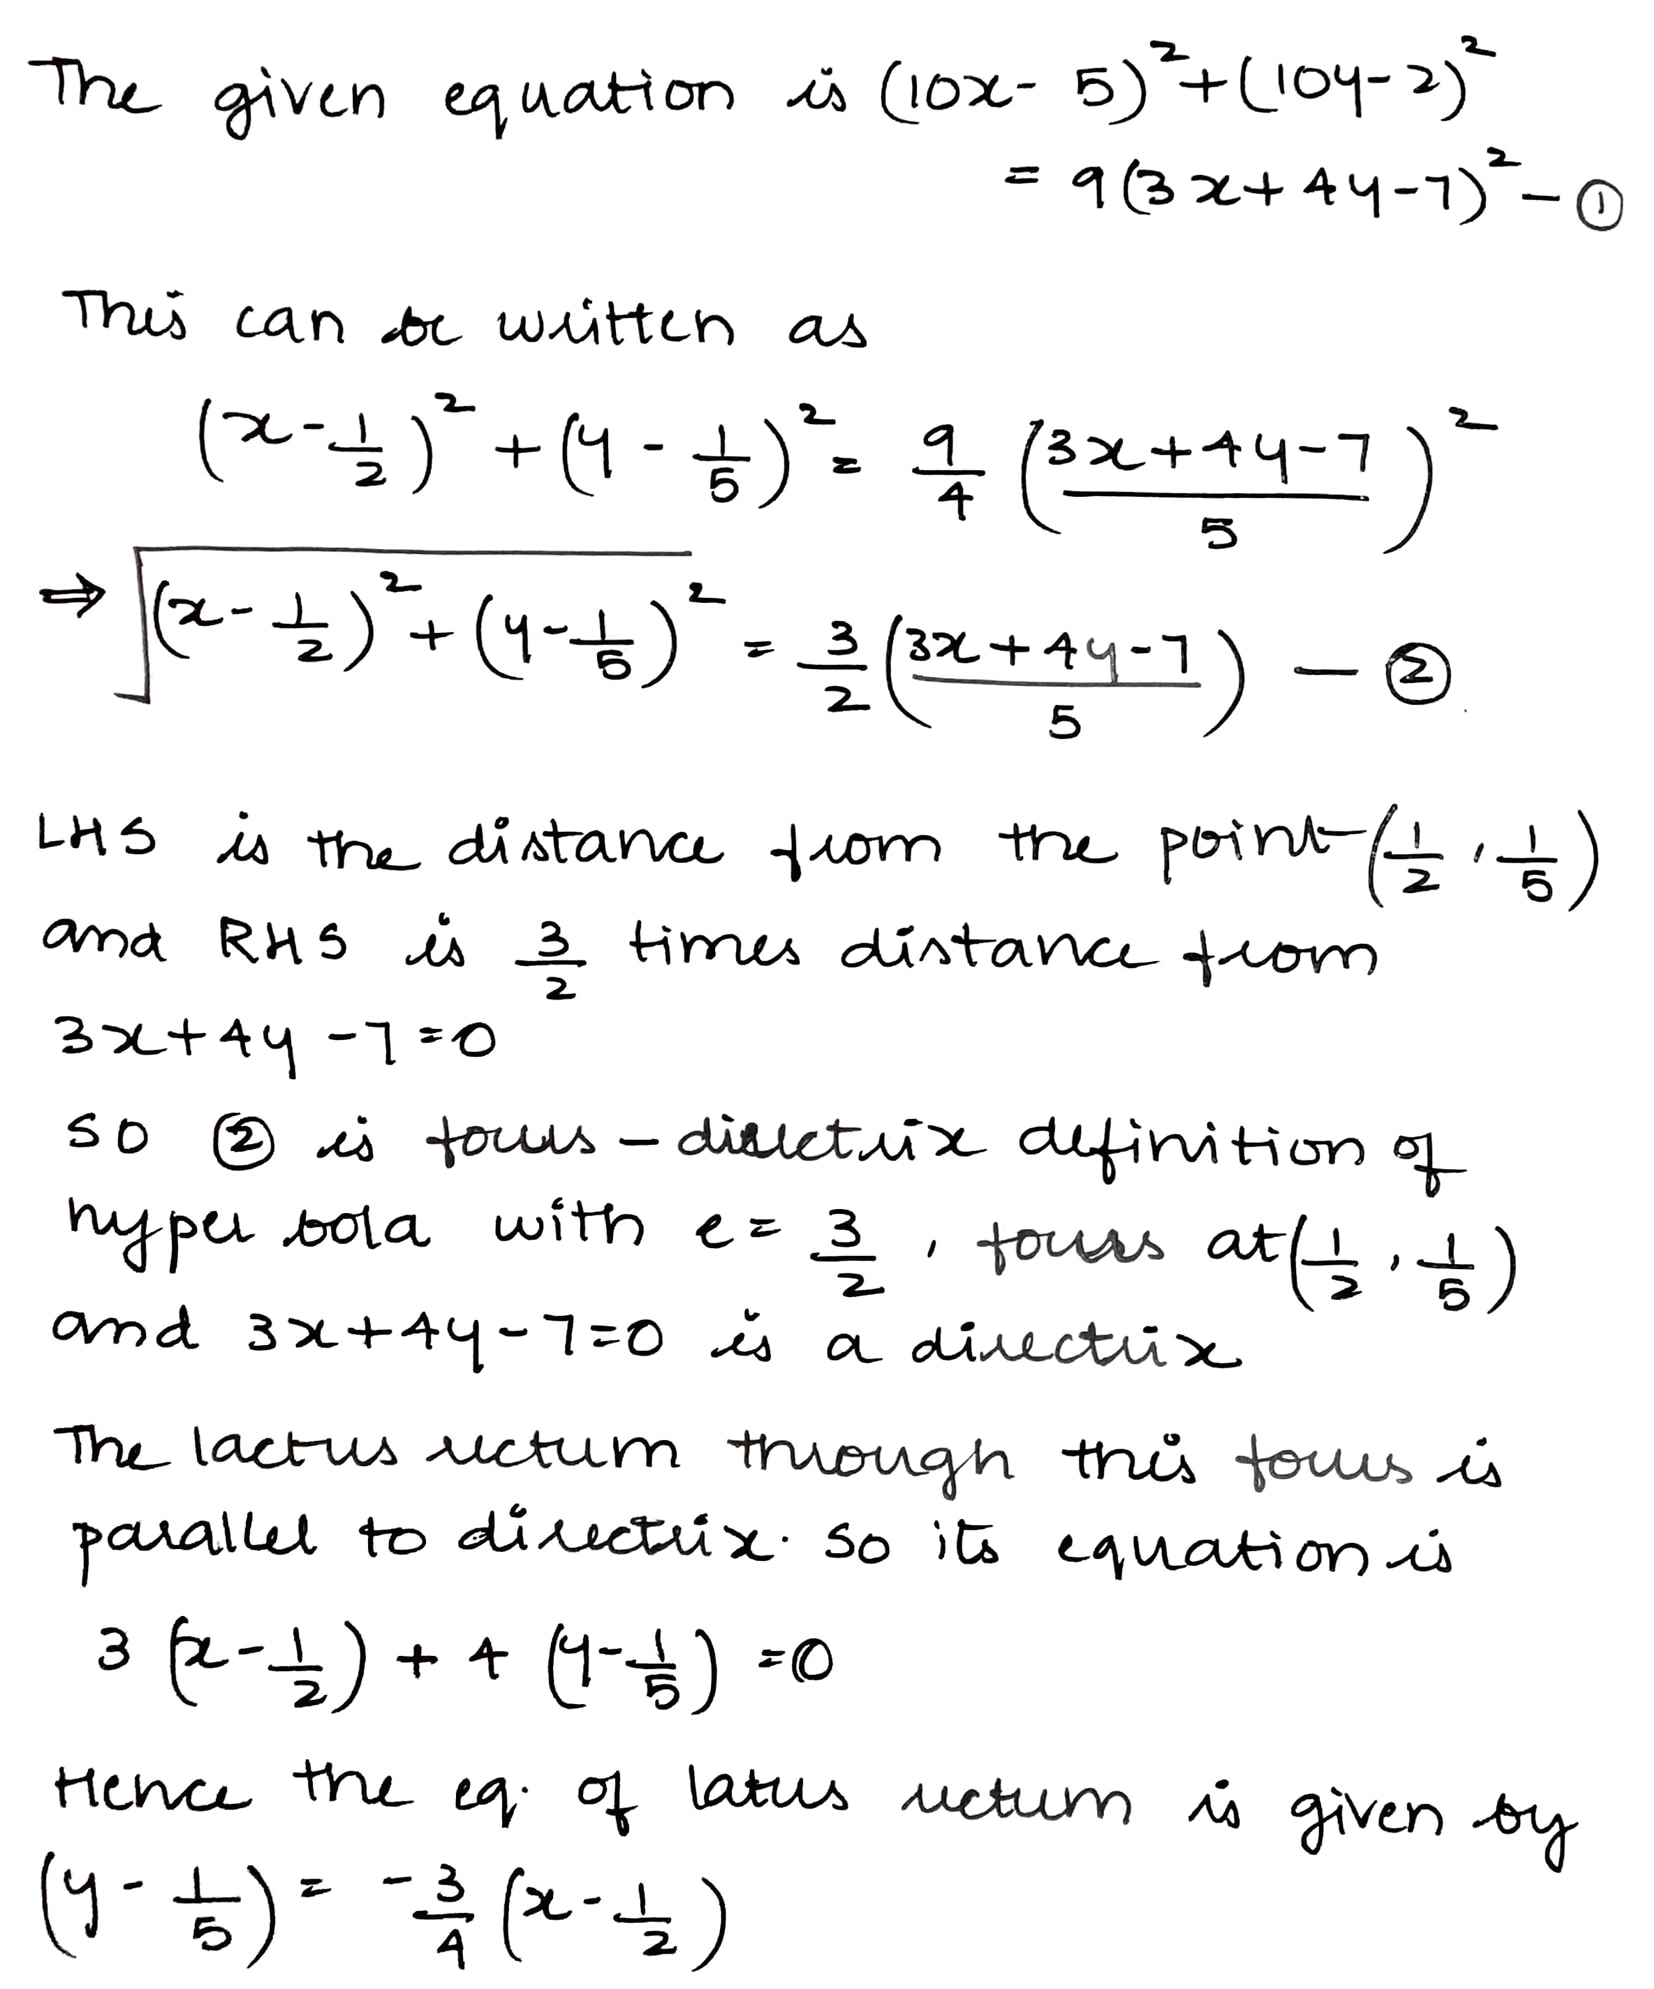 The given equation is (10x - 5)² + (10y - 2)²
= 9(3x + 4y - 7)² - ①
This can be written as
(x - 1/2)² + (y - 1/5)² = 9/4 ((3x + 4y - 7)/5)²
⇒ √((x - 1/2)² + (y - 1/5)²) = 3/2 ((3x + 4y - 7)/5) - ②
LHS is the distance from the point (1/2, 1/5)
and RHS is 3/2 times distance from
3x + 4y - 7 = 0
so ② is focus - directrix definition of
hyper bola with e = 3/2, focus at (1/2, 1/5)
and 3x + 4y - 7 = 0 is a directrix
The lactus rectum through this focus is
parallel to directrix. so its equation is
3 (x - 1/2) + 4 (y - 1/5) = 0
Hence the eq. of latus rectum is given by
(y - 1/5) = -3/4 (x - 1/2)